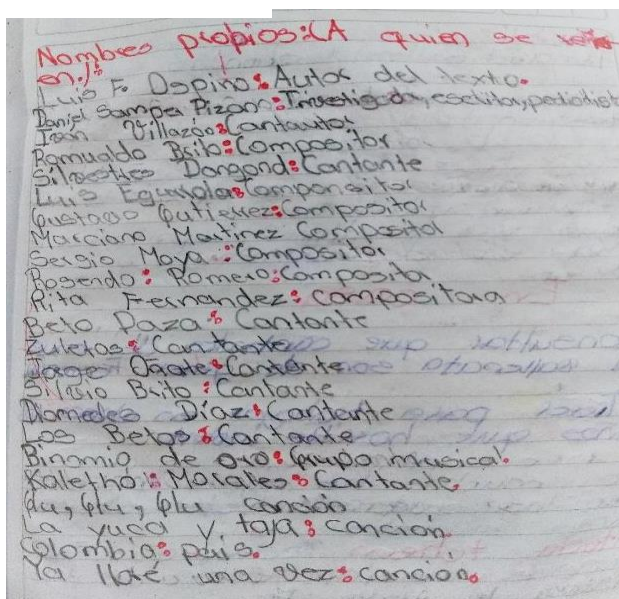 Nombres propios:(A quien se
en.):
Luis F. Ospino: Autor del texto.
Daniel Samper Pizano: Investigador, escritor, periodist
Ivan Villazón: Cantautor
Romualdo Brito: Compositor
Silvestres Dangond: Cantante
Luis Egurrola: Componsitor
Gustavo Gutierrez: Compositor
Marciano Martinez Compositor
Sergio Moya: Compositor
Rosendo: Romero: Compositor
Rita Fernandez: compositora
Beto Daza: Cantante
Zuletas: Cantante
Jorge Oñate: Cantante
Silvio Brito: Cantante
Diomedes Díaz: Cantante
Los Betos: Cantante
Binomio de oro: Grupo musical.
Kaletho: Morales: Cantante.
Glu, Glu, Glu canción
La yuca y taja: canción.
Colombia: país.
Ya lloré una vez: canción.